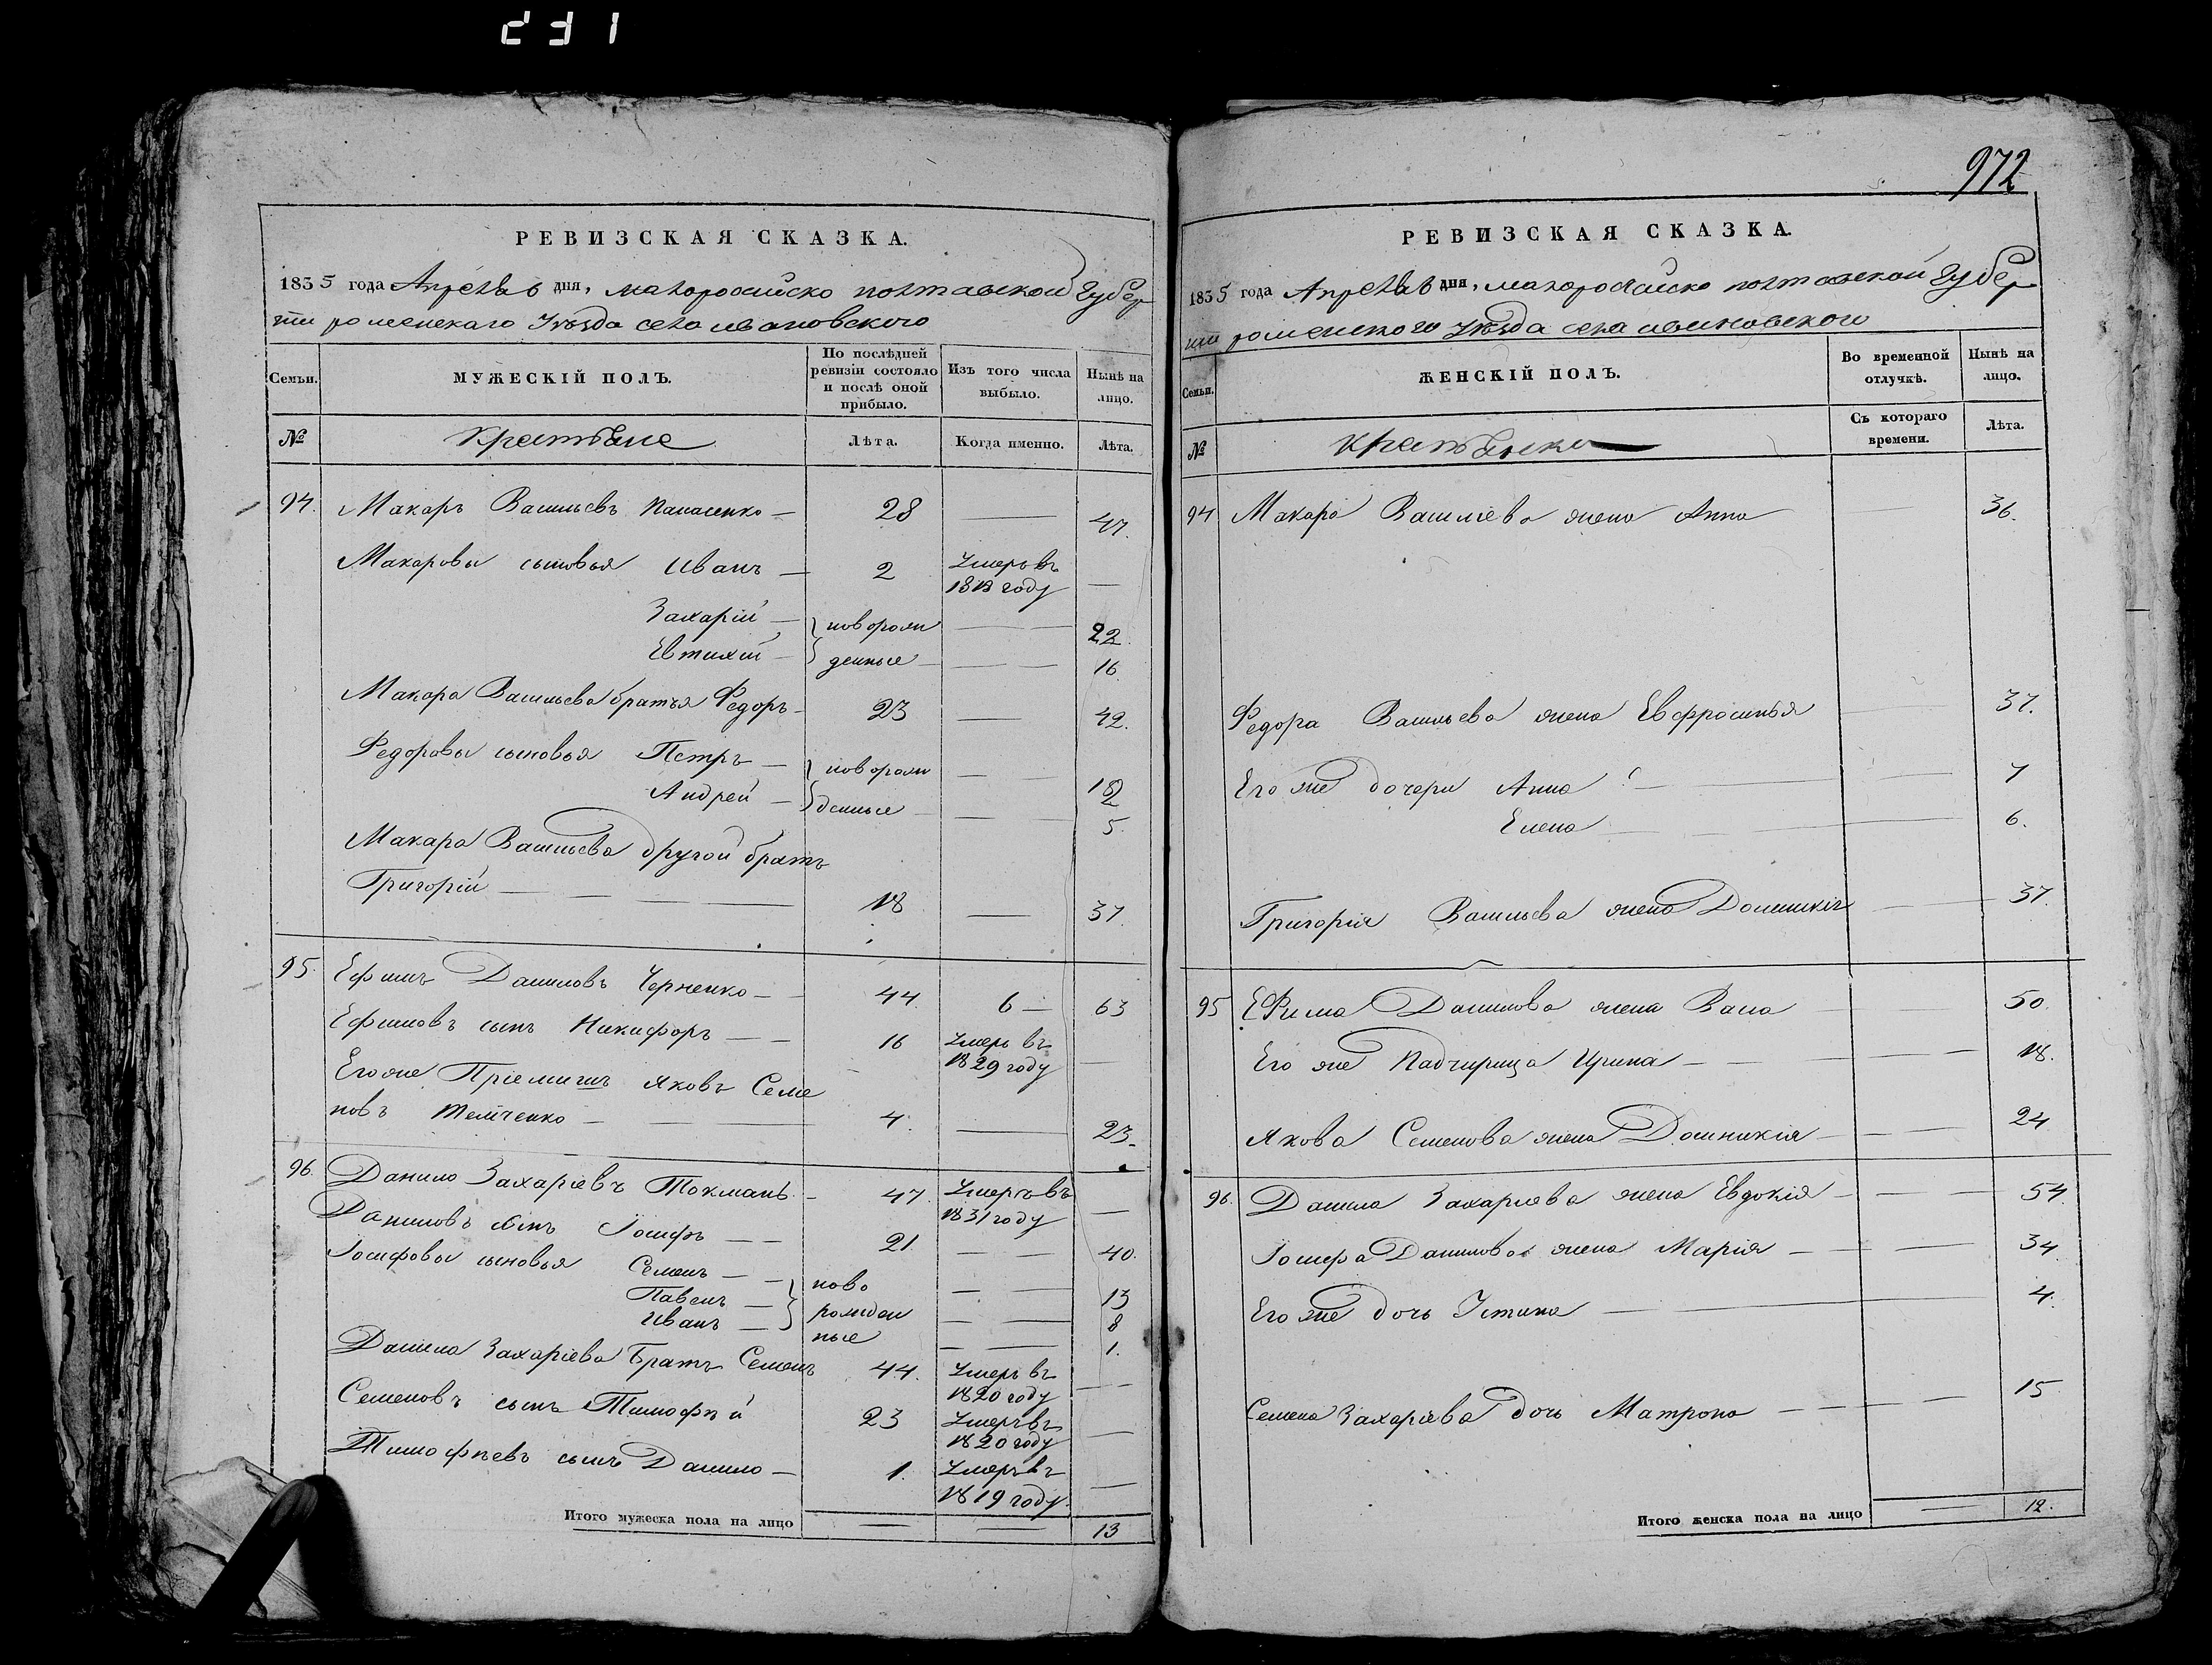 231
972
РЕВИЗСКАЯ СКАЗКА.
1835 года Апреля 6 дня, малоросийско полтавской губер
нии роменскаго Уѣзда села ивановского
Семьи.
МУЖЕСКІЙ ПОЛЪ.
По послѣдней ревизіи состояло и послѣ оной прибыло.
Изъ того числа выбыло.
Нынѣ на лицо.
№ Крестьяне Лѣта. Когда именно. Лѣта.
94. Макаръ Васильевъ Панасенко — 28 — 47.
Макаровы сыновья Иванъ — 2 Умеръ въ
1813 году —
Захарій — } новорож — 22.
Евтихій — } денные — 16
Макара Васильева братья Федоръ — 23 — 42.
Федоровы сыновья Петръ — } новорож — 12
Андрей — } денные — 5.
Макара Васильева другой братъ
Григорій — 18 — 37.
95. Ефимъ Даниловъ Черненко — 44. 6 — 63
Ефимовъ сынъ Никифоръ — 16 Умеръ въ
1829 году —
Его же Пріемишъ Яковъ Семе
новъ — 4. — 23.
96. Данило Захаріевъ Токмань — 47. Умеръ въ
1831 году —
Даниловъ сынъ Іосифъ — 21. — 40.
Іосифовы сыновья Семенъ — } ново — 13
Павелъ — } рожден — 8
Иванъ — } ные — 1.
Данила Захаріева Братъ Семенъ 44. Умеръ въ
1820 году —
Семеновъ сынъ Тимофѣй 23 Умеръ въ
1820 году —
Тимофѣевъ сынъ Данило — 1. Умеръ въ
1819 году. —
Итого мужеска пола на лицо — — 13
РЕВИЗСКАЯ СКАЗКА.
1835 года Апреля 6 дня, малоросийско полтавской губер
нии роменского Уѣзда села ивановского
Семьи.
ЖЕНСКІЙ ПОЛЪ.
Во временной отлучкѣ.
Нынѣ на лицо.
№ крестьянки Съ котораго времени. Лѣта.
94 Макара Васильева жена Анна 36.
Федора Васильева жена Евфросинья — 37.
Его же дочери Анна — 7
Елена — 6.
Григорія Васильева жена Домникія — 37.
95 Ефима Данилова жена — 50.
Его же Падчирица Ирина — 18.
Якова Семенова жена Домникія — 24
96. Данила Захариева жена Евдокія — 54.
Іосифа Данилова жена Марія — 34
Его же дочь Устина — 4.
Семена Захаріева дочь Матрона — 15
Итого женска пола на лицо — 12.